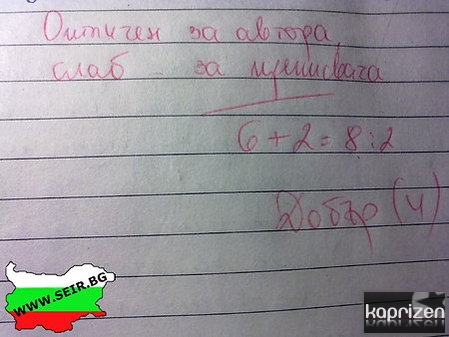 Отличен за автора,
слаб за преписвача
6 + 2 = 8 : 2
Добър (4)
WWW.SEIR.BG
kaprizen